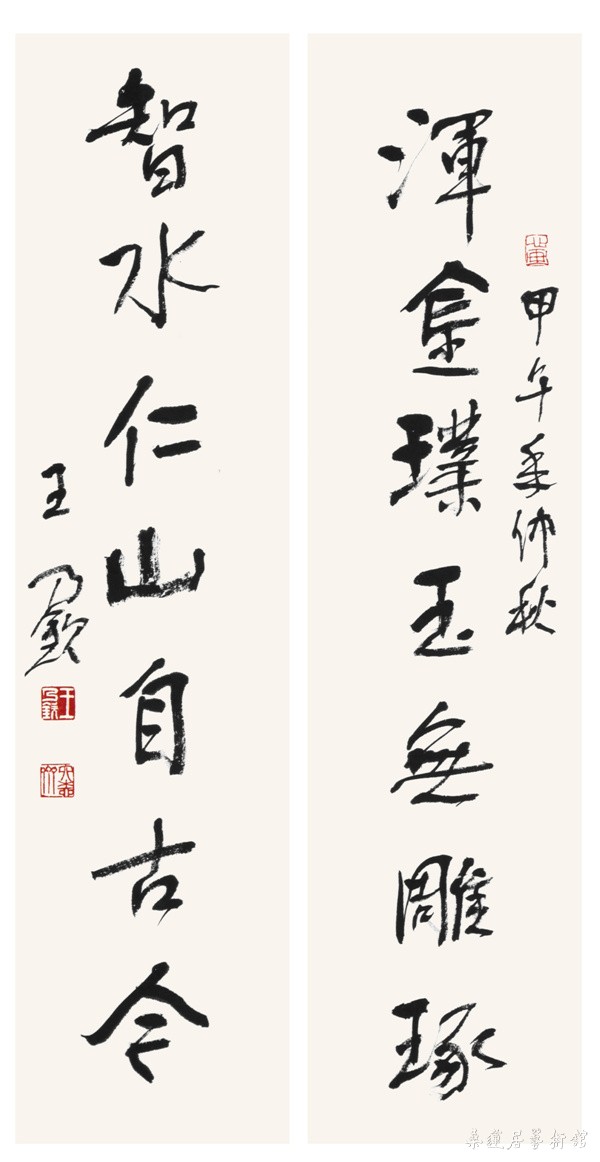 渾金璞玉無雕琢
甲午季仲秋
智水仁山自古今
王乃欽
王乃欽
桑蓮居藝術館